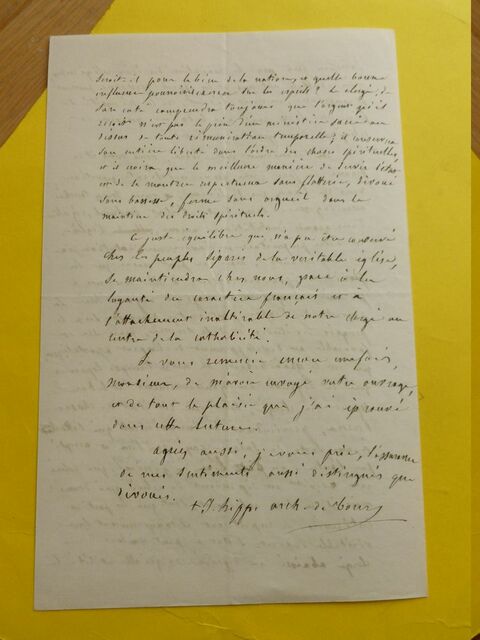 seroit-il pour le bien de la nation, et quelle bonne
influence pourroit-il sur les esprits ? Le clergé, de
son coté comprendra toujours que l'argent qu'il
reçoit n'est pas le prix d'un ministère sacré au
dessus de toute rémunération temporelle; il conservera
son entière liberté dans l'ordre des choses spirituelles,
et il croira que la meilleure manière de servir l'état
est de se montrer respectueux sans flatterie, dévoué
sans bassesse, ferme sans orgueil dans le
maintien des droits spirituels.
Ce juste équilibre qui n'a pu être conservé
chez les peuples séparés de la véritable église,
se maintiendra chez nous, grace à la
loyauté du caractère français et à
l'attachement inaltérable de notre clergé au
centre de la catholicité.
Je vous remercie encore une fois,
Monsieur, de m'avoir envoyé votre ouvrage,
et de tout le plaisir que j'ai éprouvé
dans cette lecture.
Agréez aussi, je vous prie, l'assurance
de mes sentiments aussi distingués que
dévoués.
+ J. hipp. arch. de Tours